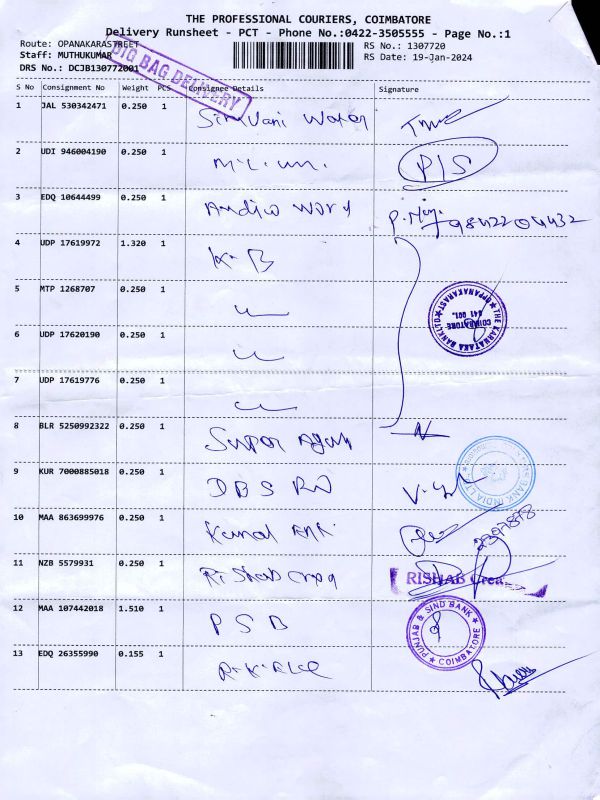 THE PROFESSIONAL COURIERS, COIMBATORE
Delivery Runsheet - PCT - Phone No.:0422-3505555 - Page No.:1
Route: OPANAKARASTREET
RS No.: 1307720
Staff: MUTHUKUMAR
RS Date: 19-Jan-2024
DRS No.: DCJB130772001
BIG BAG DELIVERY
S No Consignment No Weight PCS Consignee Details Signature
1 JAL 530342471 0.250 1 Siruvani Water
2 UDI 946004190 0.250 1 P/S
3 EDQ 10644499 0.250 1 Audio World 9842204432
4 UDP 17619972 1.320 1 K.B
5 MTP 1268707 0.250 1
THE KARNATAKA BANK LTD OPPANAKARA ST. COIMBATORE 641 001.
6 UDP 17620190 0.250 1
7 UDP 17619776 0.250 1
8 BLR 5250992322 0.250 1 Super
9 KUR 7000885018 0.250 1 DBS
BANK INDIA LTD
10 MAA 863699976 0.250 1
11 NZB 5579931 0.250 1 Rishab
RISHAB Crea
12 MAA 107442018 1.510 1 PSB
PUNJAB & SIND BANK COIMBATORE
13 EDQ 26355990 0.155 1